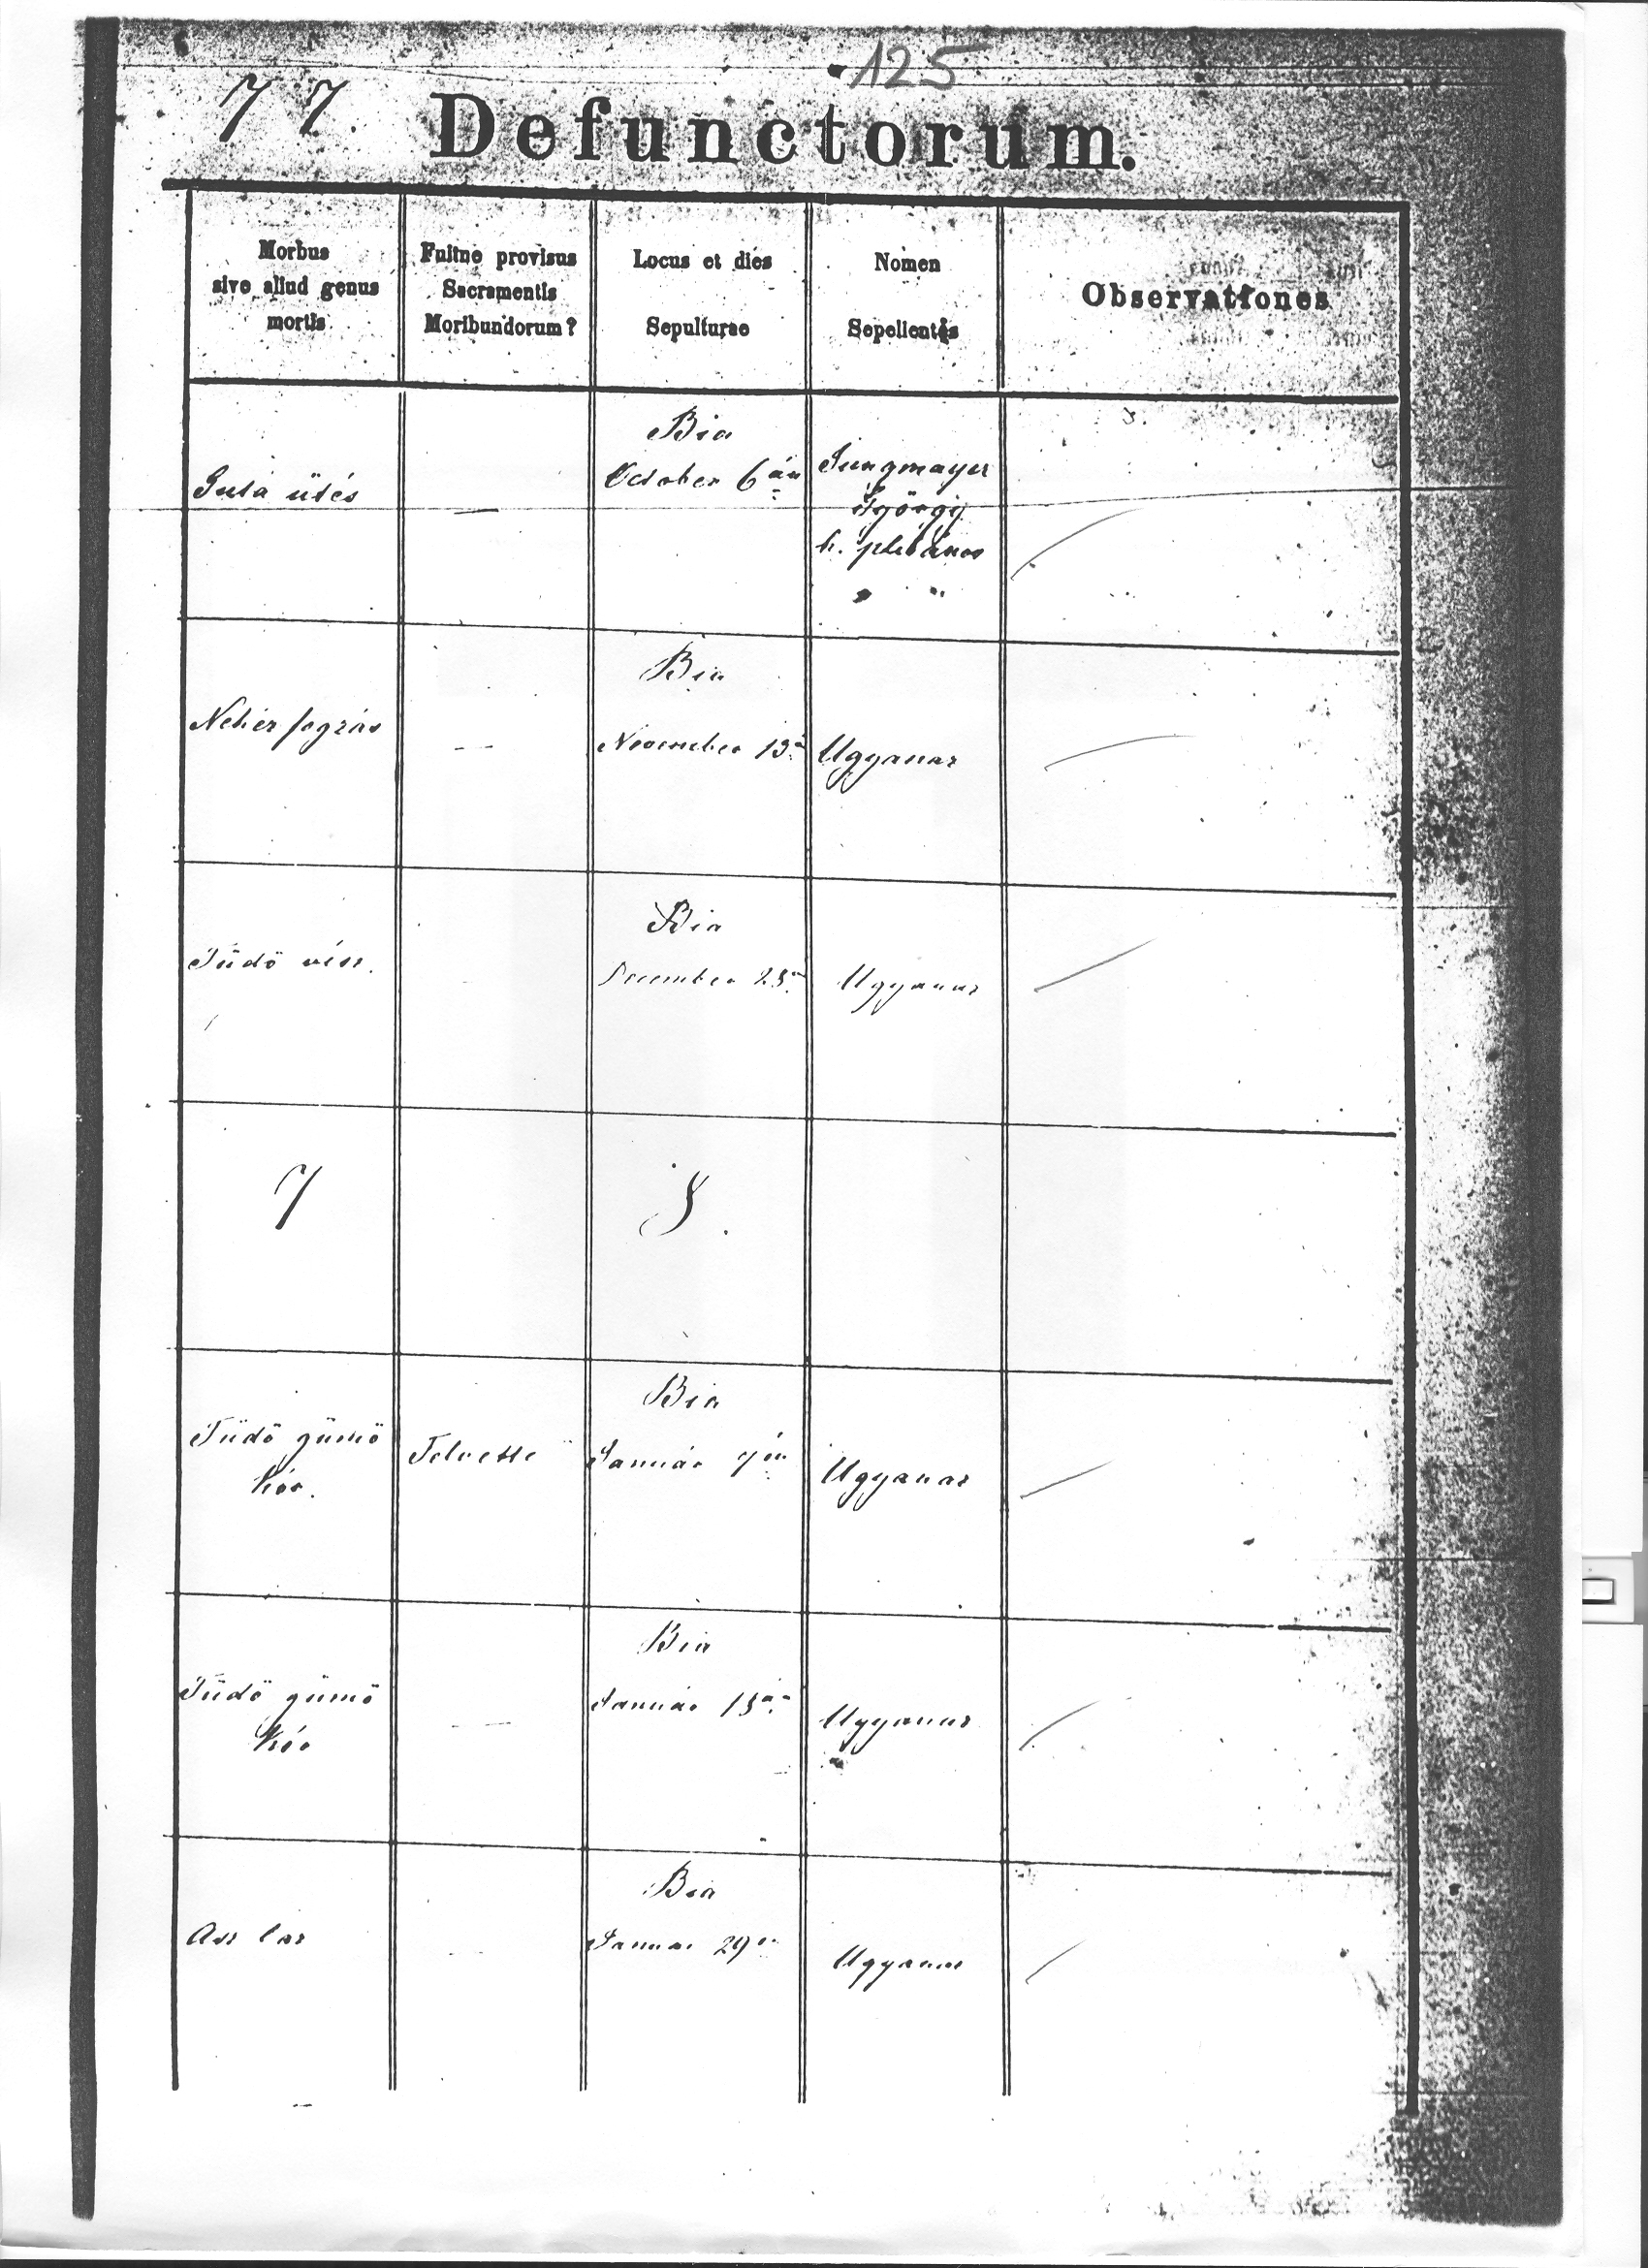 125
77.
Defunctorum.
Morbus
sive aliud genus
mortis
Fuitne provisus
Sacramentis
Moribundorum?
Locus et dies
Sepulturae
Nomen
Sepelientis
Observationes
Guta ütés
—
Bia
October 6án
Jungmayer
György
h. plebános
" "
Nehéz
—
Bia
November 13
Ugyanaz
Tüdő vész.
Bia
December
Ugyanaz
7
8.
Tüdő gümő
kór.
Felvette
Bia
Január
Ugyanaz
Tüdő gümő
kór
—
Bia
Január
Ugyanaz
—
Bia
Január 29
Ugyanaz